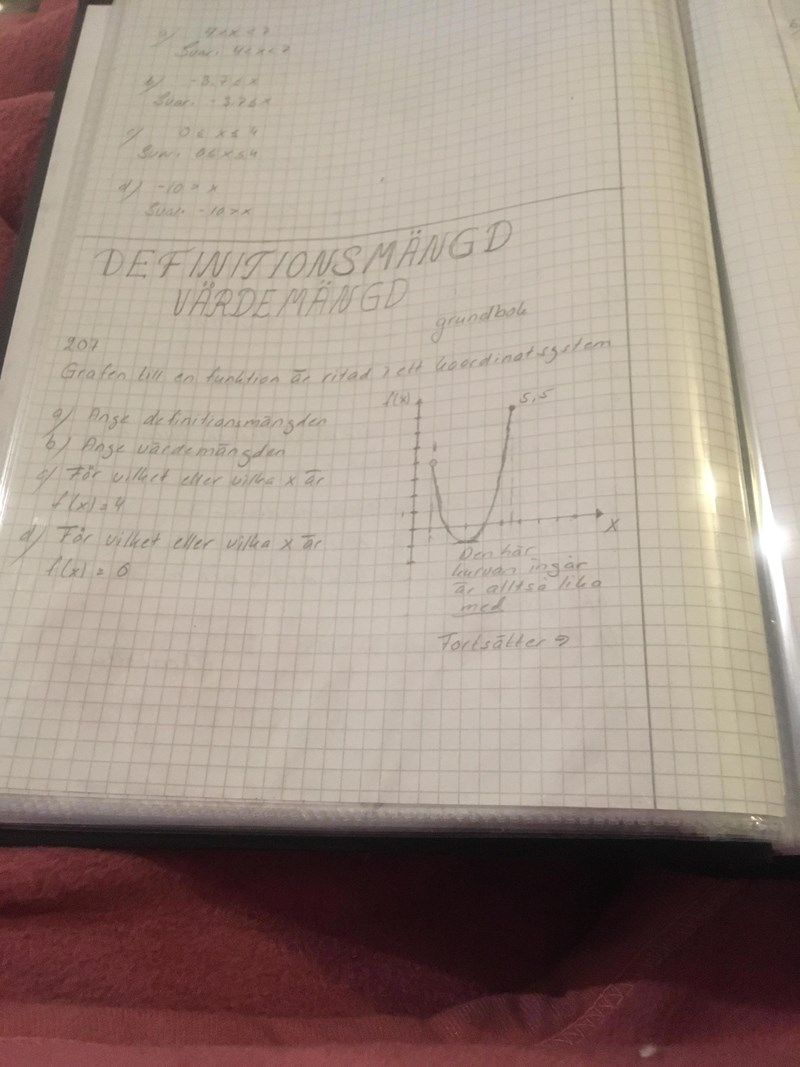 a) 4<x<7
Svar. 4<x<7
b) -3.7≤x
Svar. -3.7≤x
c) 0≤x≤4
Svar. 0≤x≤4
d) -10>x
Svar. -10>x
DEFINITIONSMÄNGD
VÄRDEMÄNGD
grundbok
207
Grafen till en funktion är ritad i ett koordinatsystem
a) Ange definitionsmängden
b) Ange värdemängden
c) För vilket eller vilka x är
f(x)=4
d) För vilket eller vilka x är
f(x) = 6
f(x)
5,5
x
Den här
kurvan ingår
är alltså lika
med
Fortsätter ⇒